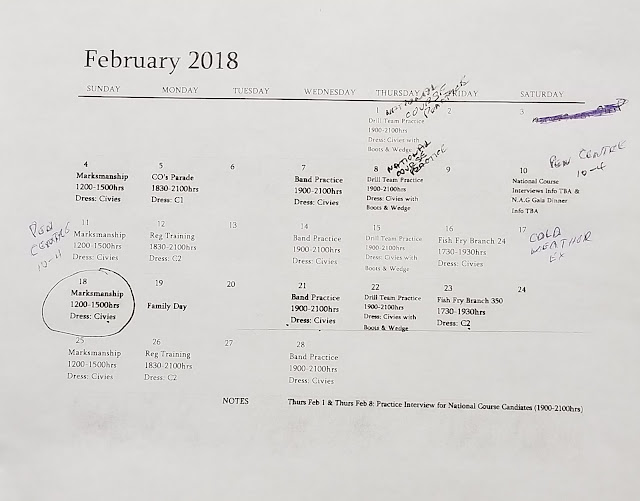 February 2018
SUNDAY MONDAY TUESDAY WEDNESDAY THURSDAY FRIDAY SATURDAY
1
NATIONAL
COURSE
PRACTICE
Drill Team Practice
1900-2100hrs
Dress: Civies with
Boots & Wedge
2
3
4
Marksmanship
1200-1500hrs
Dress: Civies
5
CO's Parade
1830-2100hrs
Dress: C1
6
7
Band Practice
1900-2100hrs
Dress: Civies
8
NATIONAL
COURSE
PRACTICE
Drill Team Practice
1900-2100hrs
Dress: Civies with
Boots & Wedge
9
10
PEN CENTRE
10-4
National Course
Interviews Info TBA &
N.A.G Gala Dinner
Info TBA
PEN
CENTRE
10-4
11
Marksmanship
1200-1500hrs
Dress: Civies
12
Reg Training
1830-2100hrs
Dress: C2
13
14
Band Practice
1900-2100hrs
Dress: Civies
15
Drill Team Practice
1900-2100hrs
Dress: Civies with
Boots & Wedge
16
Fish Fry Branch 24
1730-1930hrs
Dress: Civies
17
COLD
WEATHER
EX
18
Marksmanship
1200-1500hrs
Dress: Civies
19
Family Day
20
21
Band Practice
1900-2100hrs
Dress: Civies
22
Drill Team Practice
1900-2100hrs
Dress: Civies with
Boots & Wedge
23
Fish Fry Branch 350
1730-1930hrs
Dress: C2
24
25
Marksmanship
1200-1500hrs
Dress: Civies
26
Reg Training
1830-2100hrs
Dress: C2
27
28
Band Practice
1900-2100hrs
Dress: Civies
NOTES Thurs Feb 1 & Thurs Feb 8: Practice Interview for National Course Candiates (1900-2100hrs)